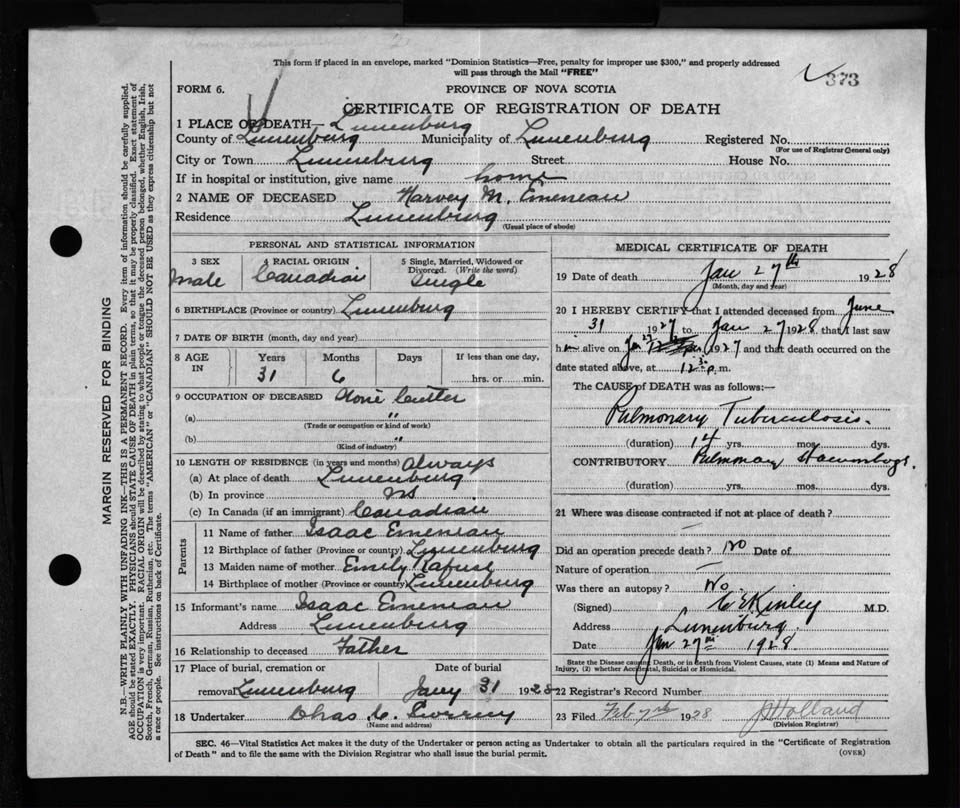 This form if placed in an envelope, marked "Dominion Statistics—Free, penalty for improper use $300," and properly addressed
will pass through the Mail "FREE"
373
FORM 6. PROVINCE OF NOVA SCOTIA
CERTIFICATE OF REGISTRATION OF DEATH
1 PLACE OF DEATH— Lunenburg
County of Lunenburg Municipality of Lunenburg Registered No.
(For use of Registrar General only)
City or Town Lunenburg Street House No.
If in hospital or institution, give name home
2 NAME OF DECEASED Harvey M. Emeneau
Residence Lunenburg
(Usual place of abode)
PERSONAL AND STATISTICAL INFORMATION
3 SEX 4 RACIAL ORIGIN 5 Single, Married, Widowed or
Divorced. (Write the word)
Male Canadian Single
6 BIRTHPLACE (Province or country) Lunenburg
7 DATE OF BIRTH (month, day and year)
8 AGE IN Years Months Days If less than one day,
31 6 hrs. or min.
9 OCCUPATION OF DECEASED Cutter
(a) "
(Trade or occupation or kind of work)
(b) "
(Kind of industry)
10 LENGTH OF RESIDENCE (in years and months) always
(a) At place of death Lunenburg
(b) In province NS
(c) In Canada (if an immigrant) Canadian
Parents
11 Name of father Isaac Emeneau
12 Birthplace of father (Province or country) Lunenburg
13 Maiden name of mother Emily Rafuse
14 Birthplace of mother (Province or country) Lunenburg
15 Informant's name Isaac Emeneau
Address Lunenburg
16 Relationship to deceased Father
17 Place of burial, cremation or Date of burial
removal Lunenburg Jany 31 1928
18 Undertaker Chas
(Name and address)
MEDICAL CERTIFICATE OF DEATH
19 Date of death Jan 27th 1928
(Month, day and year)
20 I HEREBY CERTIFY that I attended deceased from June
31 1927 to Jan 27 1928 that I last saw
him alive on Jan 27 1927 and that death occurred on the
date stated above, at 12.30 p.m.
The CAUSE of DEATH was as follows:—
Pulmonary Tuberculosis.
(duration) 14 yrs. mos. dys.
CONTRIBUTORY Pulmonary
(duration) yrs. mos. dys.
21 Where was disease contracted if not at place of death?
—
Did an operation precede death? No Date of
Nature of operation —
Was there an autopsy? No.
(Signed) C E Kinley M.D.
Address Lunenburg
Date Jan 27th 1928
State the Disease causing Death, or in death from Violent Causes, state (1) Means and Nature of
Injury, (2) whether Accidental, Suicidal or Homicidal.
22 Registrar's Record Number
23 Filed Feb 7th 1928 Holland
(Division Registrar)
SEC. 46—Vital Statistics Act makes it the duty of the Undertaker or person acting as Undertaker to obtain all the particulars required in the "Certificate of Registration
of Death" and to file the same with the Division Registrar who shall issue the burial permit. (OVER)
MARGIN RESERVED FOR BINDING
N.B.—WRITE PLAINLY WITH UNFADING INK—THIS IS A PERMANENT RECORD. Every item of information should be carefully supplied.
AGE should be stated EXACTLY. PHYSICIANS should STATE CAUSE OF DEATH in plain terms, so that it may be properly classified. Exact statement of
OCCUPATION is very important. RACIAL ORIGIN will be described by stating to what people or tongue the deceased person belonged, whether English, Irish,
Scotch, French, German, Russian, Ruthenian, etc. The terms "AMERICAN" or "CANADIAN" SHOULD NOT BE USED as they express citizenship but not
a race or people. See instructions on back of Certificate.